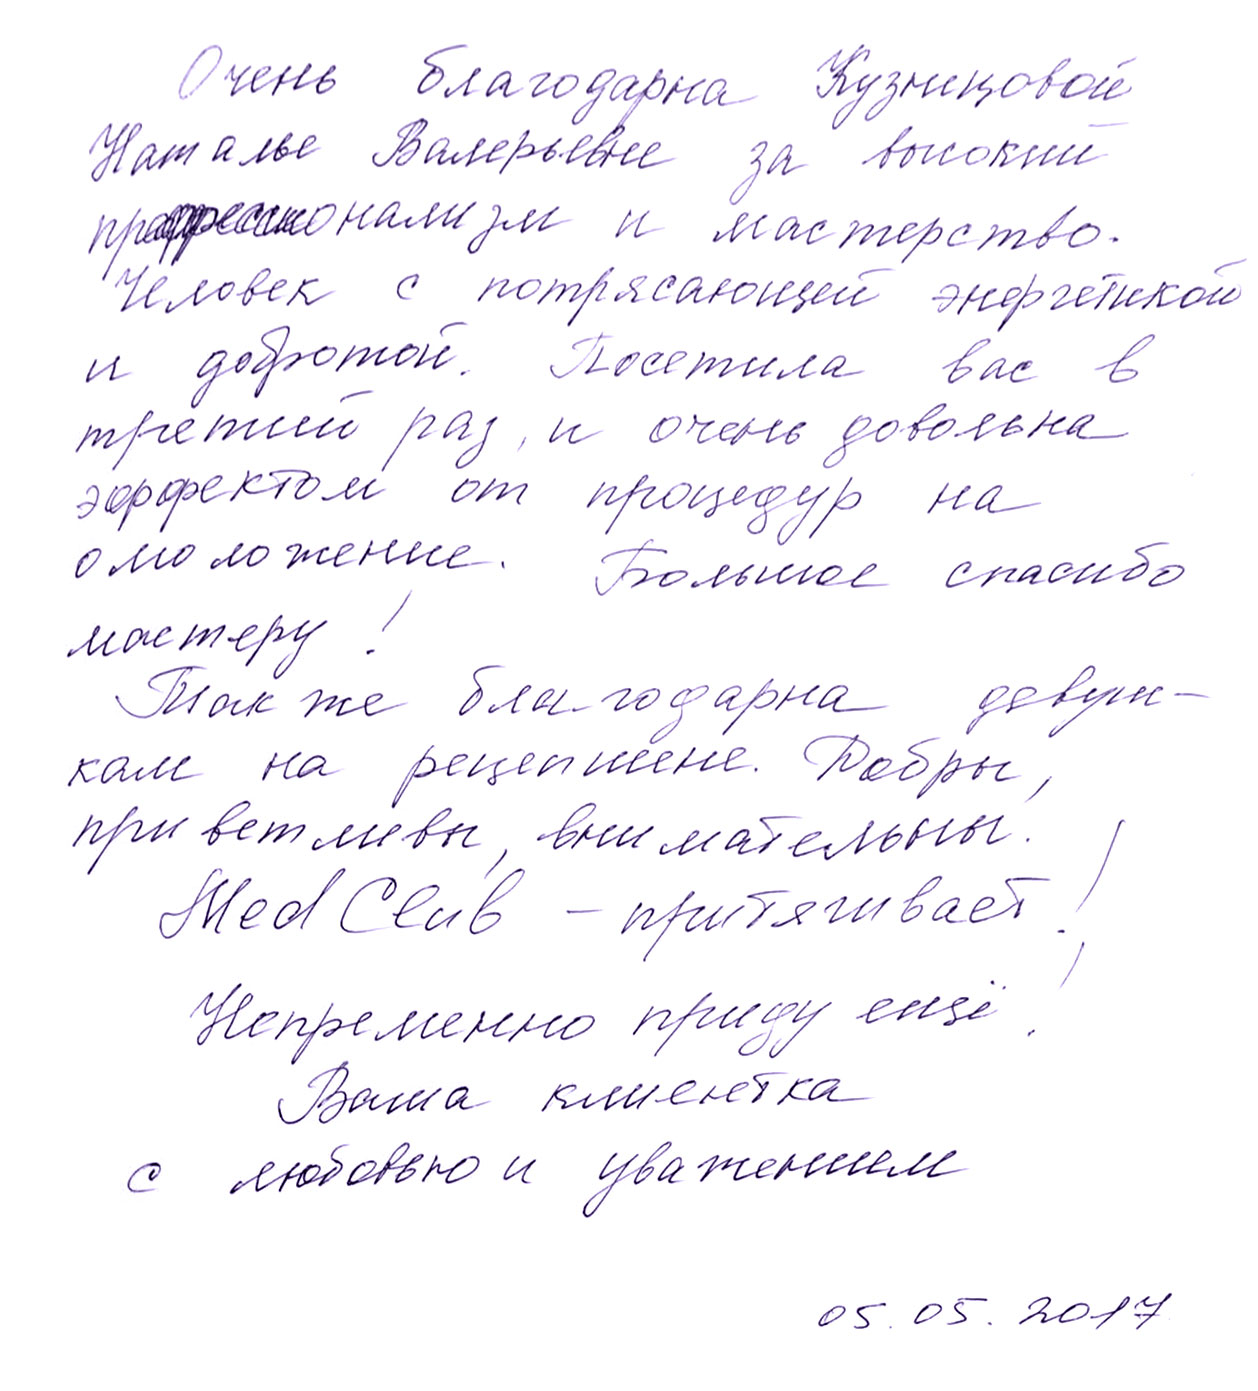 Очень благодарна Кузницовой
Наталье Валерьевне за высокий
профессионализм и мастерство.
Человек с потрясающей энергетикой
и добротой. Посетила вас в
третий раз, и очень довольна
эффектом от процедур на
омоложение. Большое спасибо
мастеру!
Также благодарна девуш-
кам на рецепшене. Добры,
приветливы, внимательны.
Med Club - притягивает!
Непременно приду ещё!
Ваша клиентка
с любовью и уважением
05.05.2017